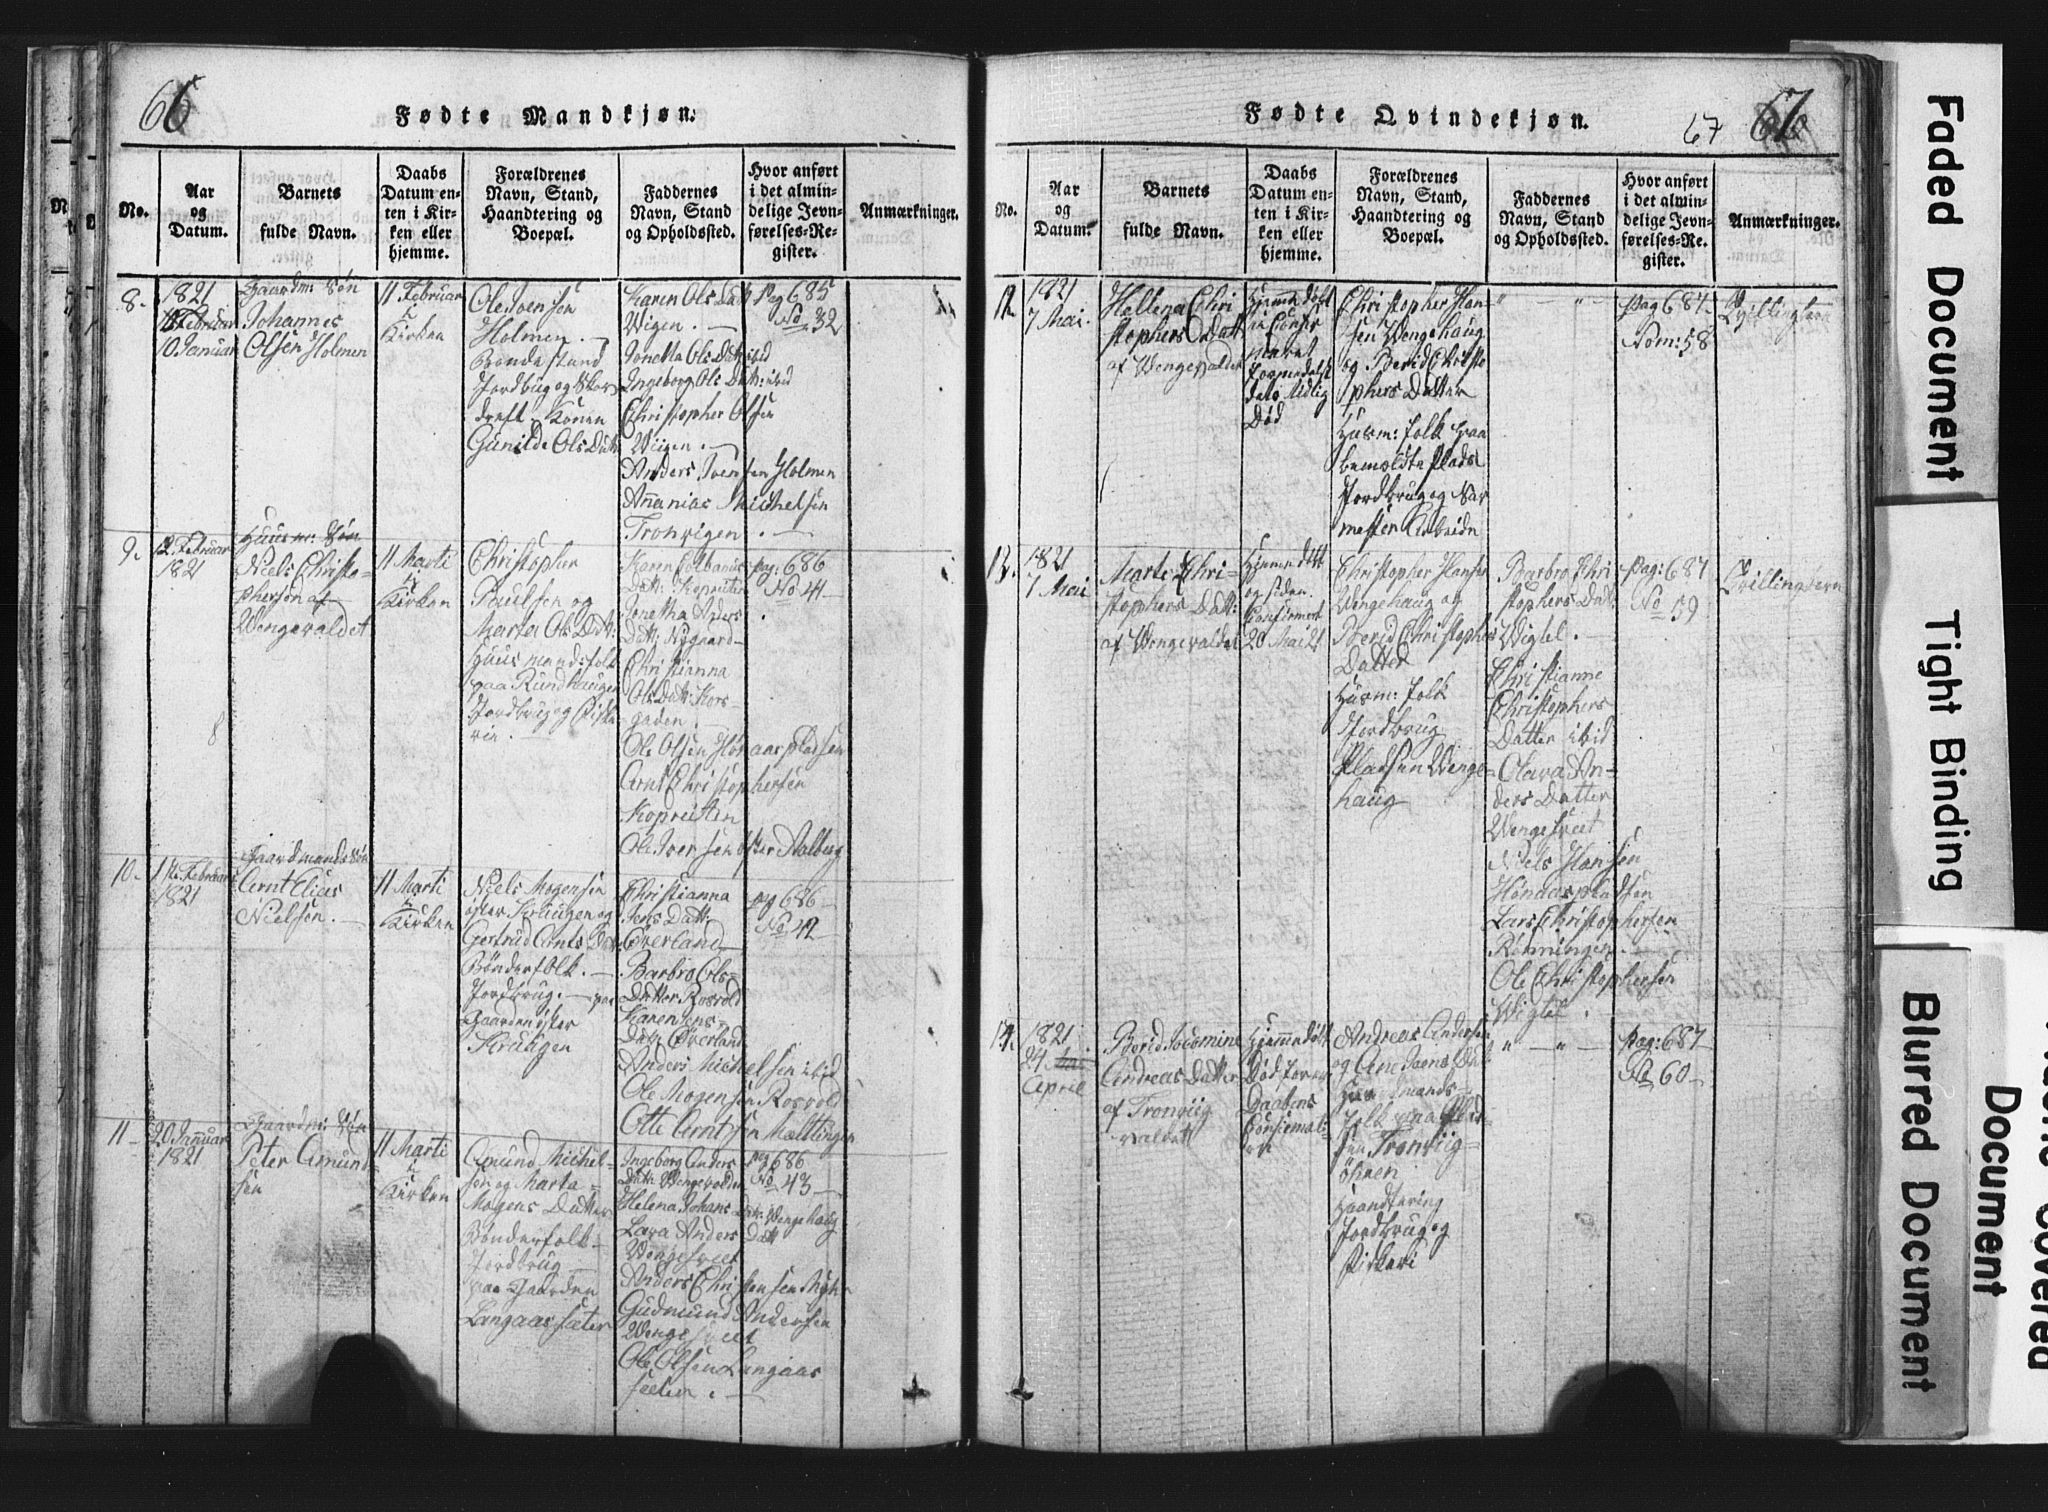 66
Fødte Mandkjøn:
No.
Aar
og
Datum.
Barnets
fulde Navn.
Daabs
Datum en-
ten i Kir-
ken eller
hjemme.
Forældrenes
Navn, Stand,
Haandtering og
Boepæl.
Faddernes
Navn, Stand
og Opholdssted.
Hvor anført
i det almin-
delige Jevn-
førelses-Re-
gister.
Anmærkninger.
8.
1821
10 Januar
Gaardm: Søn
Johannes
Olsen Holmen
11 Februar
i
Kirken
Ole Iversen
Holmen.
Bondestand
Jordbrug og Skov
drift. Konen
Gunilde Ols Datt
Karen Ols Datt
Wigen.
Jonetta Ols Datt: ibid
Ingeborg Ols Datt: ibid
Christopher Olsen
Wigen.
Anders Iversen Holmen
Ananias Michelsen
Tronvigen
Pag 685
No 32
9.
12 Februar
1821
Huusm: Søn
Niels Christo-
phersen af
Wengevaldet
11 Marti
i
Kirken
Christopher
Paulsen og
Marta Ols Datt:
Huusmandsfolk
paa Rundhaugen
Jordbrug og Fiske
rie.
Karen
Datt: Kopreiten
Jonetha Anders
Datt: Nygaard
Christianna
Ols Datt: Kors-
gaden.
Ole Olsen Hønaaspladsen
Arnt Christophersen
Kopreiten
Ole Iversen øster Aalberg
pag: 686
No 41
10.
1821
Gaardmands Søn
Arnt Elias
Nielsen.
11 Marti
i
Kirken
Niels Mogensen
øster Hrüugen og
Gertrud Arnts Datt
Bønderfolk.
Jordbrug. paa
Gaarden øster
Christianna
Jens Datt:
Øverland
Barbro Ols-
Datter Rosvold
Karen Jens-
Datt Øverland
Anders Michelsen ibid
Ole Mogensen Rosvold
Otte Arntsen Mælingen
pag 686
No 42
11
20 Januar
1821
Gaardm: Søn
Peter Amund-
sen
11 Marti
i
Kirken
Amund Michel-
sen og Marta
Mogens Datter
Bønderfolk
Jordbrug
paa Gaarden
Langaassæter
Ingeborg Anders
Datt: Wengevolden
Helena Johans Datt: Wengehaug
Lava Anders Datt
Wengesveet
Anders Christensen
Gudmund Andersen
Wengesveet
Ole Olsen Langaas
sæter.
pag 686
No 43
Fødte Qvindekjøn.
67
67
No.
Aar
og
Datum.
Barnets
fulde Navn.
Daabs
Datum en-
ten i Kir-
ken eller
hjemme.
Forældrenes
Navn, Stand,
Haandtering og
Boepæl.
Faddernes
Navn, Stand
og Opholdssted.
Hvor anført
i det almin-
delige Jevn-
førelses-Re-
gister.
Anmærkninger.
12.
1821
7 Mai
Hellena Chri
stophers Datt
af Wengevaldet
Hjemmedøbt
Død
Christopher Han-
sen Wengehaug
og Berid Christo
phers Datter
Husm: folk paa
bemeldte Plads
Jordbrug og
Pag 687
Nom: 58
Tvillingbørn
13.
1821
7 Mai
Marte Chri-
stophers Datt:
af Wengevaldet
Hjemmedøbt
og siden
Confirmert
20 Mai 21
Christopher Hansen
Wengehaug og
Berid Christophers
Datter
Husm: folk
Jordbrug
Pladsen Wenge-
haug
Barbro Chri
stophers Datt:
Wigtel.
Christianne
Christophers
Datter ibid
Olava An-
ders Datter
Wengesveet
Niels Hansen
Hønaaspladsen
Lars Christophersen
Rønningen.
Ole Christophersen
Wigtel.
Pag: 687
No 59
Tvillingbørn
14.
1821
24
April
Berid
Andreas Datter
af Tronviig
valdet
Hjemmedøbt
Død foren
Daabens
Andreas Andersen
og Ane Jens Datt
Huusmands-
folk paa Plad-
sen Tronviig-
øhren
Haandtering
Jordbrug og
Fiskeri
Pag: 687
No 60
Faded Document
Tight Binding
Blurred Document
Document